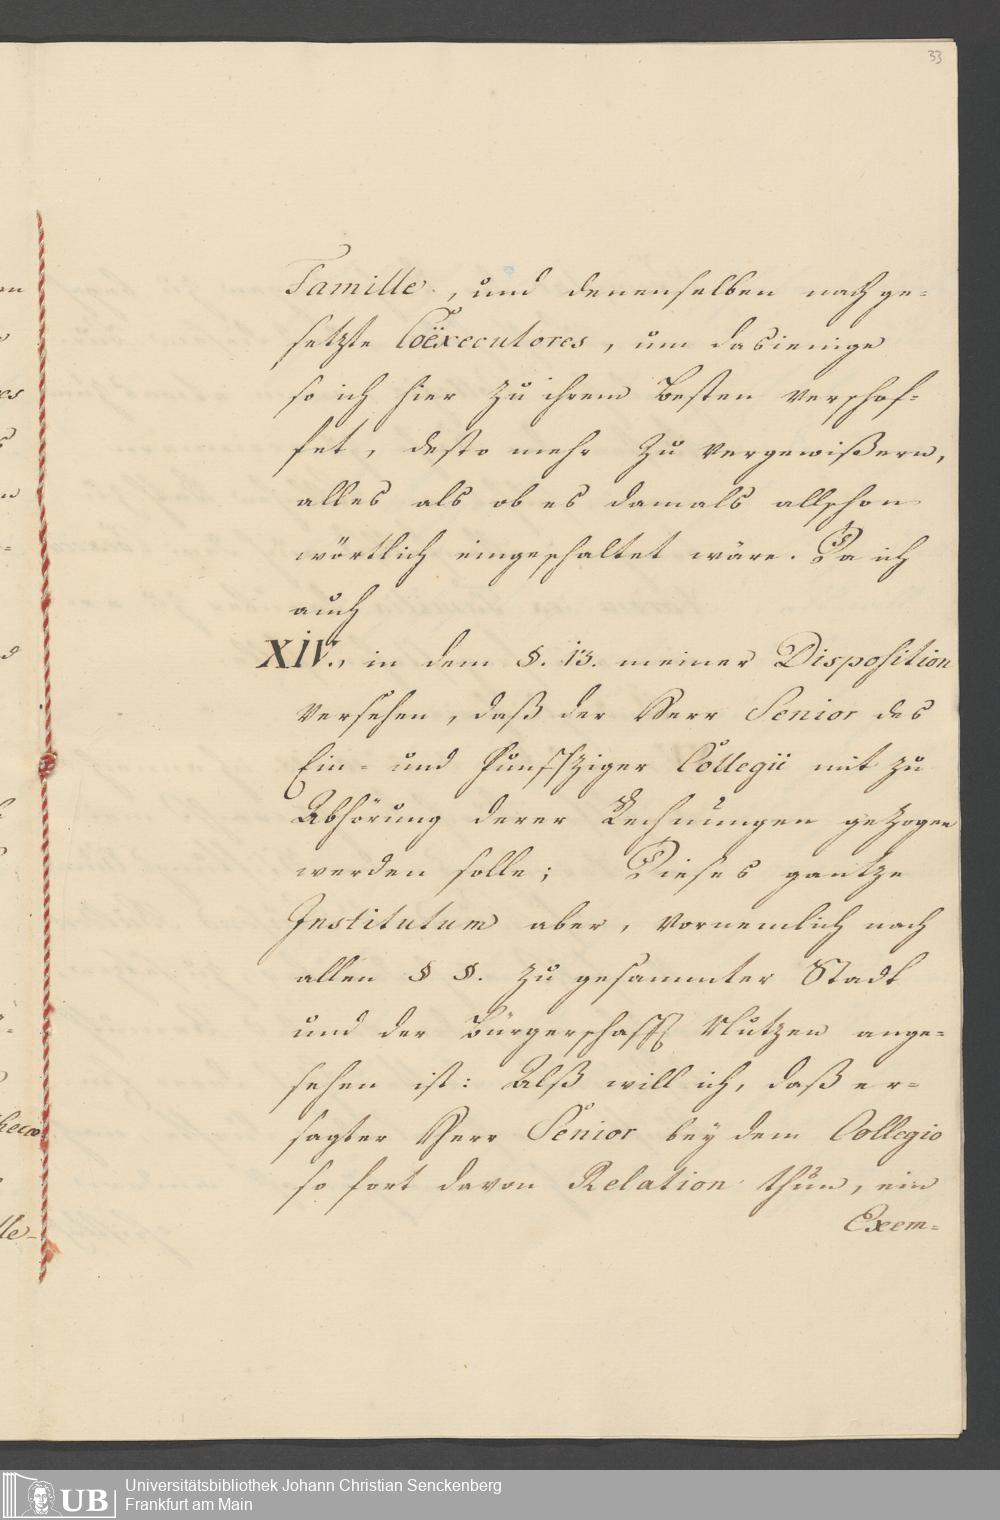 33
Famille, und denenselben nachge-
setzte Coëxecutores, um dasienige
so ich hier zu ihrem Besten verschaf-
fet, desto mehr zu vergewißern,
alles als ob es damals allschon
wörtlich eingeschaltet wäre. Da ich
auch
XIV., in dem §. 13. meiner Disposition
versehen, daß der Herr Senior des
Ein- und Funffziger Collegii mit zu
Abhörung derer Rechnungen gezogen
werden solle; Dieses gantze
Institutum aber, vornemlich nach
allen § §. zu gesammter Stadt
und der Bürgerschafft Nutzen ange-
sehen ist: Alß will ich, daß er-
sagter Herr Senior bey dem Collegio
so fort davon Relation thun, ein
Exem-
UB
Universitätsbibliothek Johann Christian Senckenberg
Frankfurt am Main